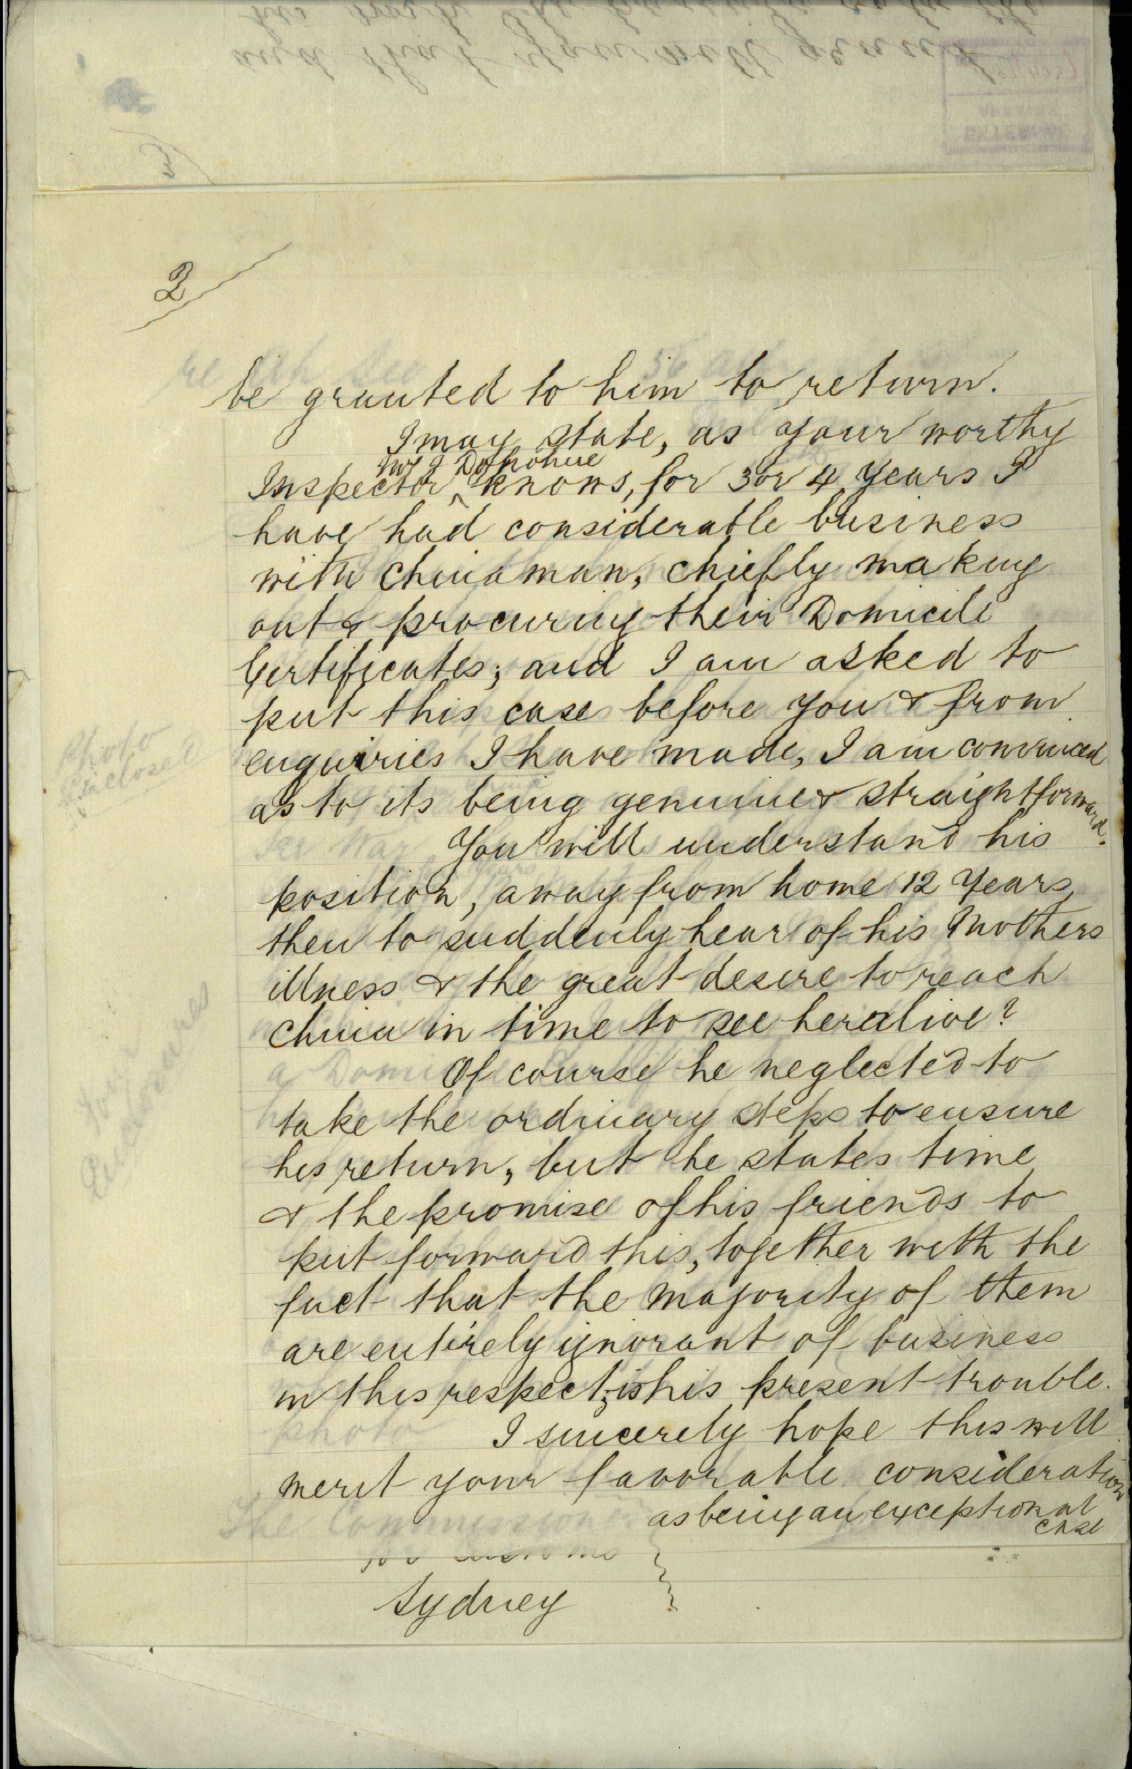 2
be granted to him to return.
I may state, as your worthy
Mr J Donohue
Inspector ^ knows, for 3 or 4 years I
have had considerable business
with Chinaman, chiefly making
out & procuring their Domicile
Certificates; and I am asked to
put this case before you & from
enquiries I have made, I am convinced
as to its being genuine & straightforward.
You will understand his
position, away from home 12 years,
then to suddenly hear of his Mothers
illness & the great desire to reach
China in time to see her alive?
Of course he neglected to
take the ordinary steps to ensure
his return, but he states time
& the promise of his friends to
put forward this, together with the
fact that the majority of them
are entirely ignorant of business
in this respect, is his present trouble.
I sincerely hope this will
merit your favorable consideration
as being an exceptional
case
Photo
Enclosed
Enclosures
The Commission
for Customs
Sydney